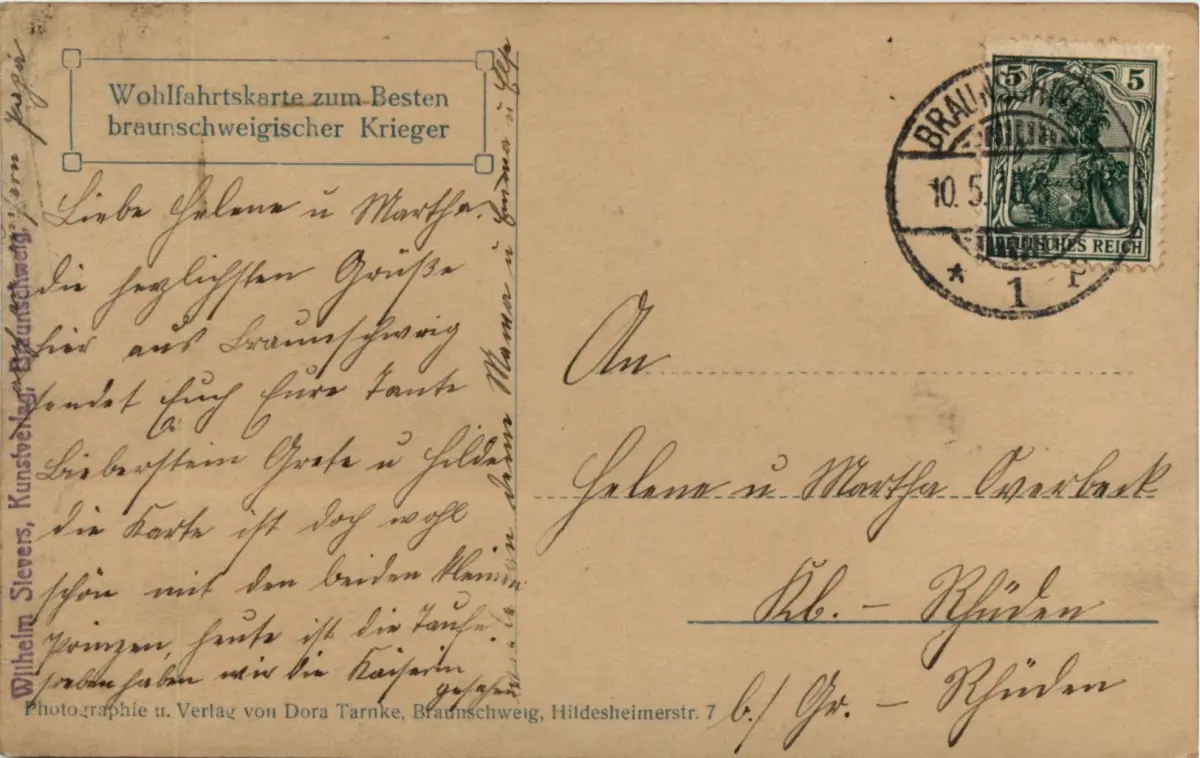 Wohlfahrtskarte zum Besten
braunschweigischer Krieger
Liebe Helene u Martha.
die herzlichsten Grüße
hier aus Braunschweig
sendet Euch Eure Tante
Bieberstein Grete u Hilde
die Karte ist doch wohl
schön mit den beiden kleinen
Prinzen, heute ist die Taufe.
soeben haben wir die Kaiserin
gesehen
Mama u
Wilhelm Sievers, Kunstverlag, Braunschweig.
Photographie u. Verlag von Dora Tarnke, Braunschweig, Hildesheimerstr. 7
5 5
DEUTSCHES REICH
10.5.
* 1
An
Helene u Martha Overbeck
Kb. - Rhüden
b./ Gr. - Rhüden